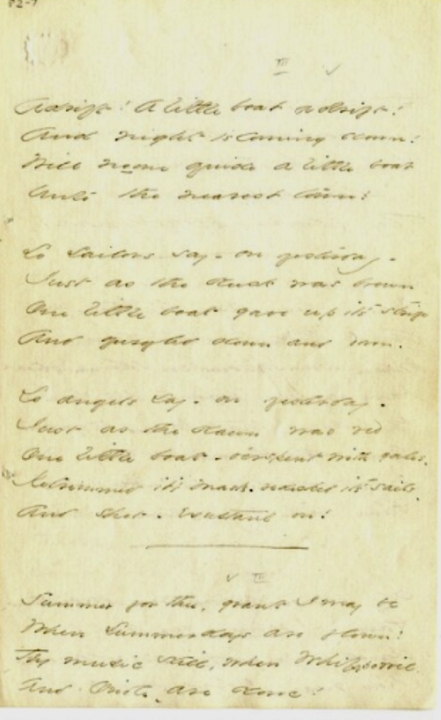 82-7
III
Adrift! A little boat adrift!
And night is coming down!
Will no one guide a little boat
Unto the nearest town?
So sailors say - on yesterday -
Just as the dusk was brown
One little boat gave up it's strife
And gurgled down and down.
So angels say - on yesterday -
Just as the dawn was red
One little boat - o'erspent with gales -
Retrimmed it's masts - redecked it's sails -
And shot - exultant on!
III
Summer for thee, grant I may be
When Summer days are flown!
Thy music still, when Whippowil
And Oriole - are done!